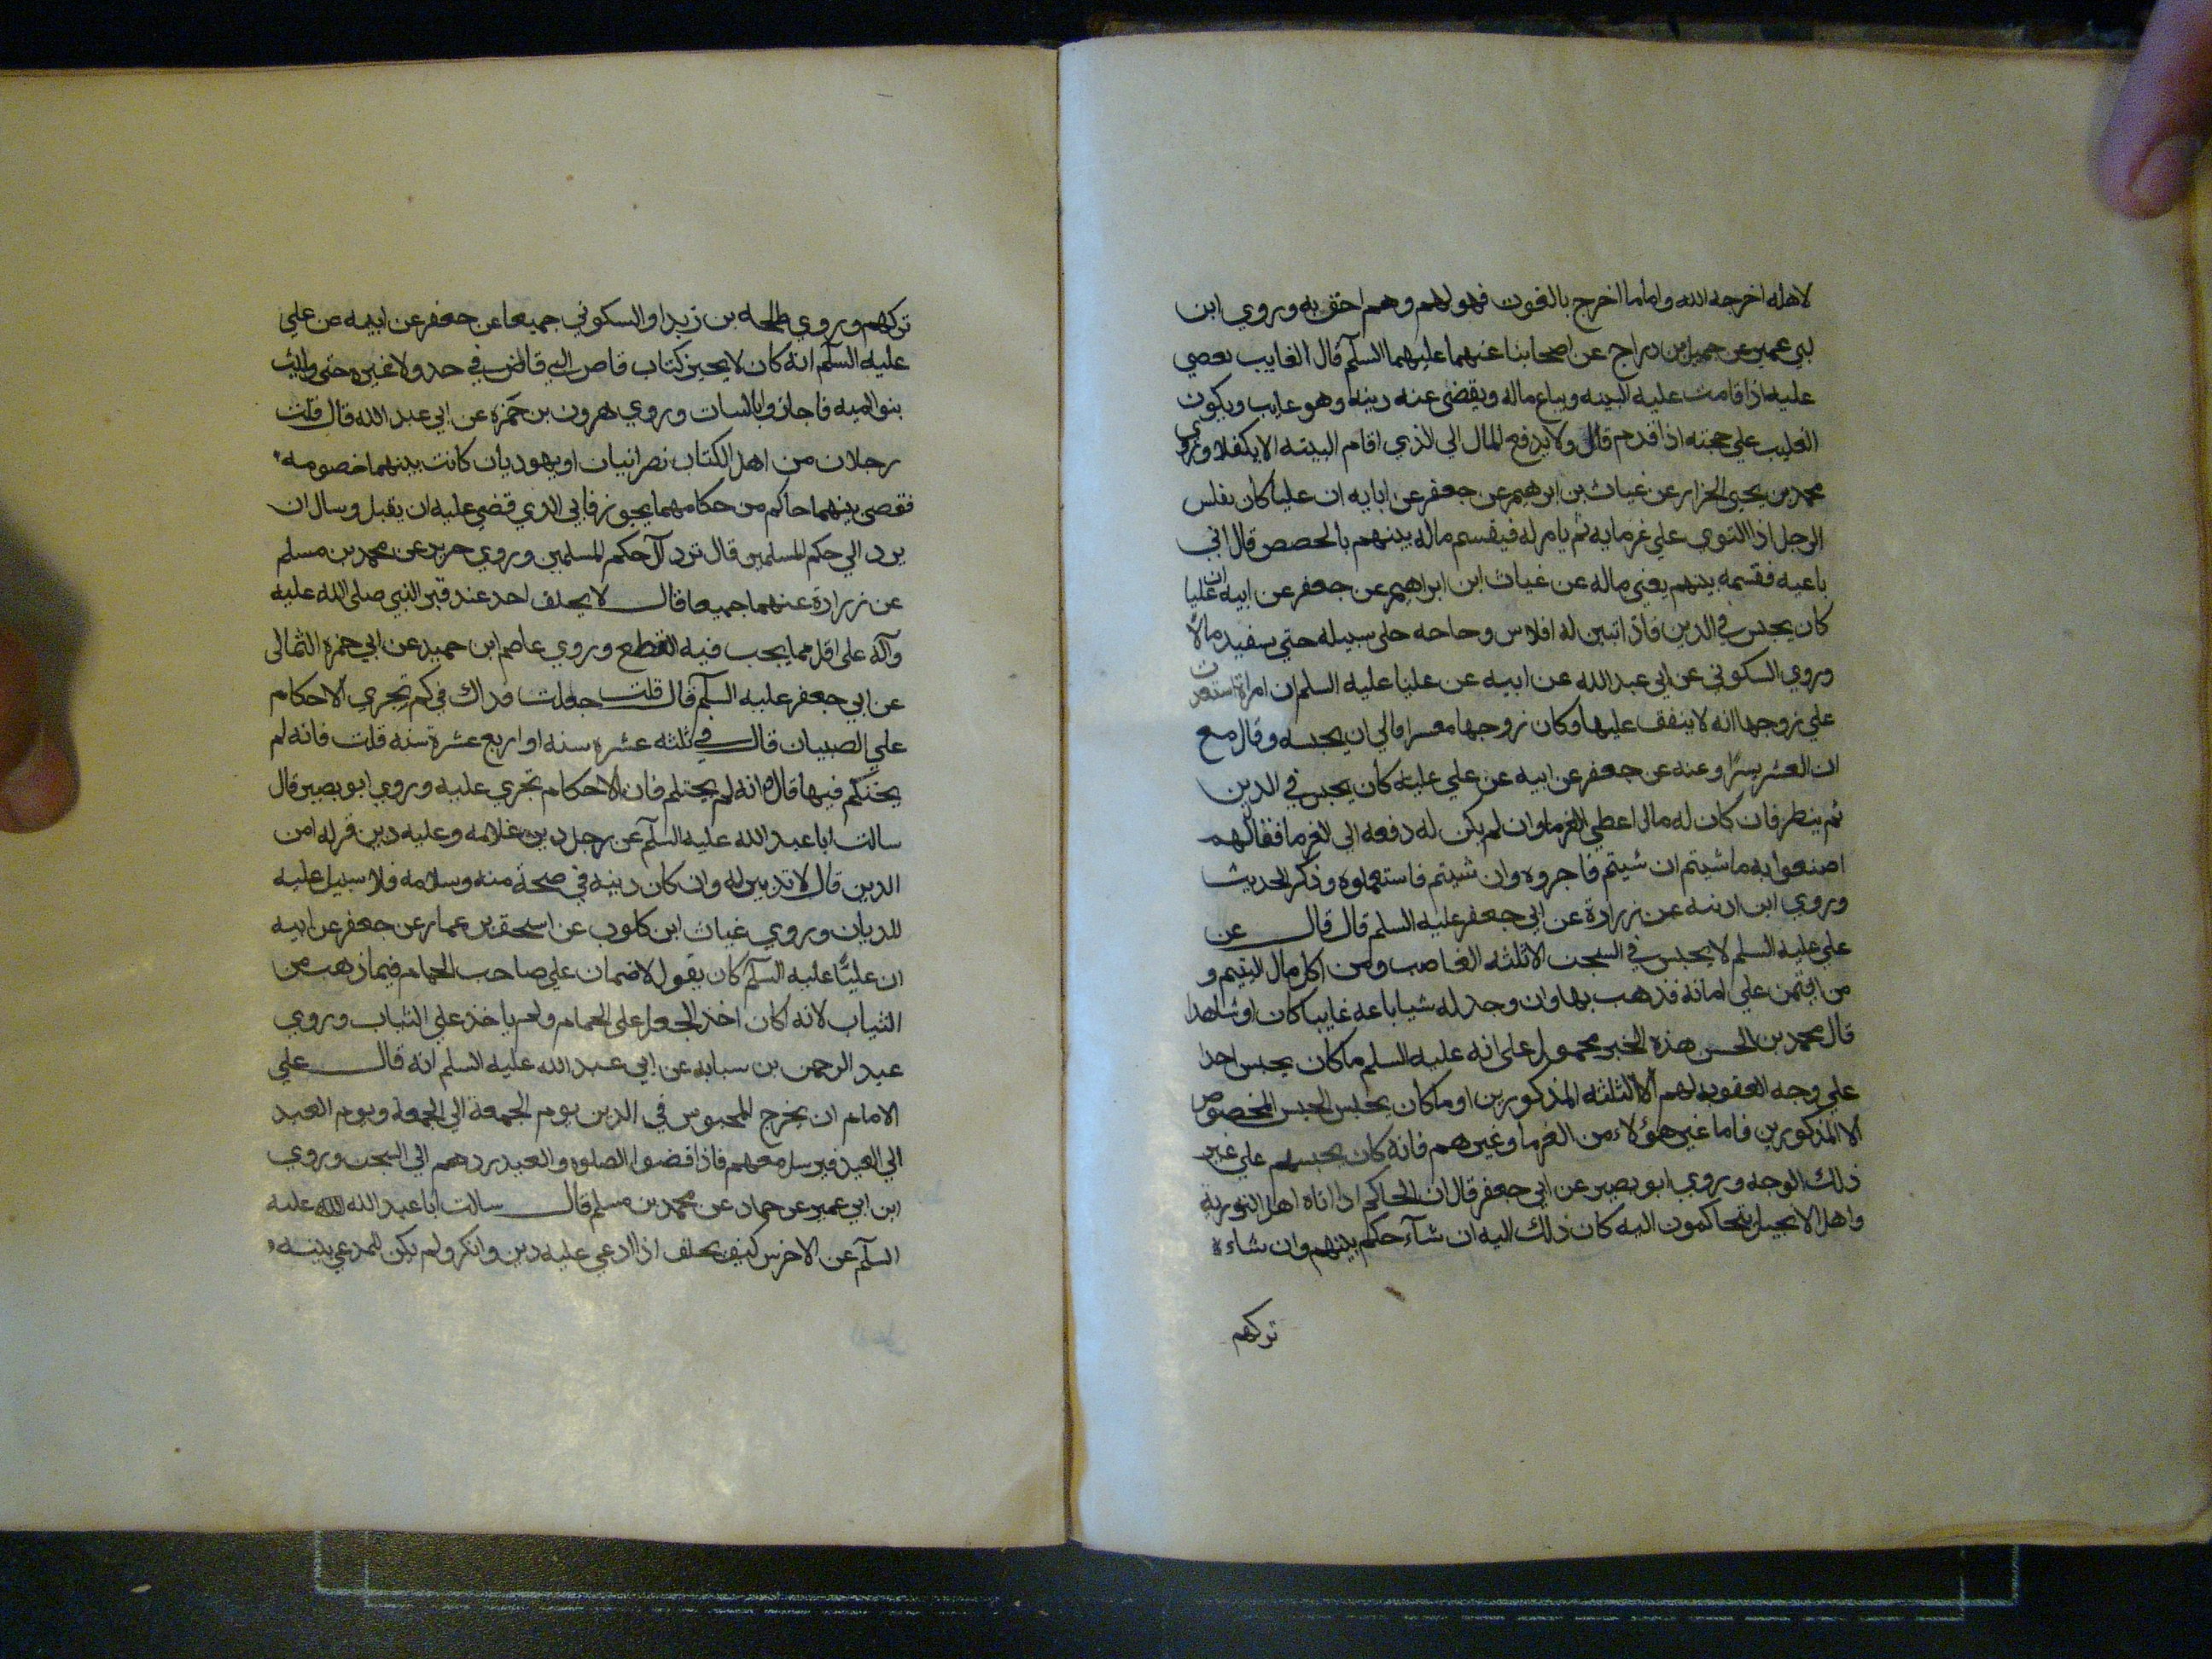 لاهله اخرجه الله واماما اخرج بالغوث فهو لهم وهم احق به وروي ابن
ابي عمير عن جميل بن دراج عن اصحابنا عنهما عليهما السلم قال الغايب يقضي
عليه اذا قامت عليه البينه ويباع ماله ويقضى عنه دينه وهو غايب ويكون
الغايب علي حجته اذا قدم قال ولا يدفع المال الي الذي اقام البينه الا بكفلا وروي
محمد بن يحيي الخزاز عن غياث بن ابرهيم عن جعفر عن ابايه ان عليا كان يفلس
الرجل اذا التوي علي غرمايه ثم يامر له فيقسم ماله بينهم بالحصص قال ابي
باعيه فقسمه بينهم يعني ماله عن غياث ابن ابراهيم عن جعفر عن ابيه ان عليا
كان يحبس في الدين فاذا تبين له افلاس وحاجه خلي سبيله حتي يستفيد مالاً
وروي السكوني عن ابي عبد الله عن ابيه عن عليا عليه السلم ان امراة استعدت
علي زوجها انه لا ينفق عليها وكان زوجها معسرا فابي ان يحبسه وقال مع
ان العسر يسرًا وعنه عن جعفر عن ابيه عن علي عليه كان يحبس في الدين
ثم ينظر فان كان له مال اعطي الغرما وان لم يكن له دفعه الي الغرما فقال لهم
اصنعوا به ما شيتم ان شيتم فاجروه وان شيتم فاستعملوه وذكر الحديث
وروي ابن اذينه عن زرارة عن ابي جعفر عليه السلم قال قال عن
علي عليه السلم لا يحبس في السجن الا ثلثه الغاصب ومن اكل مال اليتيم و
من ايتمن علي امانة فذهب بها وان وجد له شيا باعه غايبا كان او شاهدا
قال محمد بن الحسن هذه الخبر محمول علي انه عليه السلم ما كان يحبس احدا
علي وجه العقوبه لهم الا الثلثه المذكورين او ما كان يحبس الحبس المخصوص
الا المذكورين فاما غير هؤلاء من الغرما وغيرهم فانه كان يحبسهم علي غير
ذلك الوجه وروي ابو بصير عن ابي جعفر قال ان الحاكم اذا اتاه اهل التورية
واهل الانجيل يتحاكمون اليه كان ذلك اليه ان شآء حكم بينهم وان شاء
تركهم
تركهم وروي طلحه بن زيد او السكوني جميعا عن جعفر عن ابيه عن علي
عليه السلم انه كان لا يجيز كتاب قاض الي قاض في حد ولا غيره حتى وليت
بنو الميه فاجازوا بالبينات وروي هرون بن حمزه عن ابي عبد الله قال قلت
رجلان من اهل الكتاب نصرانيان او يهوديان كانت بينهما خصومه
فقضى بينهما حاكم من حكامهما بجوز فابي الذي قضي عليه ان يقبل وسال ان
يرد الي حكم المسلمين قال ترد الي حكم المسلمين وروي حريز عن محمد بن مسلم
عن زرارة عنهما جميعا قال لا يحلف احد عند قبر النبي صلي الله عليه
وآله على اقل مما يجب فيه القطع وروي عاصم ابن حميد عن ابي حمزه الثمالى
عن ابي جعفر عليه السلم قال قلت جعلت فداك في كم تجري الاحكام
علي الصبيان قال في ثلثه عشره سنه او اربع عشرة سنه قلت فانه لم
يحتكم فيها قال وانه لم يحتلم فان الاحكام تجري عليه وروي ابو بصير قال
سالت ابا عبد الله عليه السلم عن رجل دبر غلامه وعليه دين فراراً من
الدين قال لا تدبير له وان كان دبره في صحة منه وسلامه فلا سبيل عليه
للديان وروي غياث ابن كلوب عن اسحق بن عمار عن جعفر عن ابيه
ان عليًّا عليه السلم كان يقول لا ضمان علي صاحب الحمام فيما ذهب من
الثياب لانه اكان اخذ الجعل علي الحمام ولم ياخذ علي الثياب وروي
عبد الرحمن بن سيابه عن ابي عبد الله عليه السلم انه قال علي
الامام ان يخرج المحبوس في الدين يوم الجمعة الي الجمعه ويوم العيد
الي العيد فيرسل معهم فاذا قضوا الصلوه والعيد ردهم الي السجن وروي
ابن ابي عمير عن حماد عن محمد بن مسلم قال سالت ابا عبد الله عليه
السلم عن الاخرس كيف يحلف اذا ادعي عليه دين وانكر ولم يكن للمدعي بينه